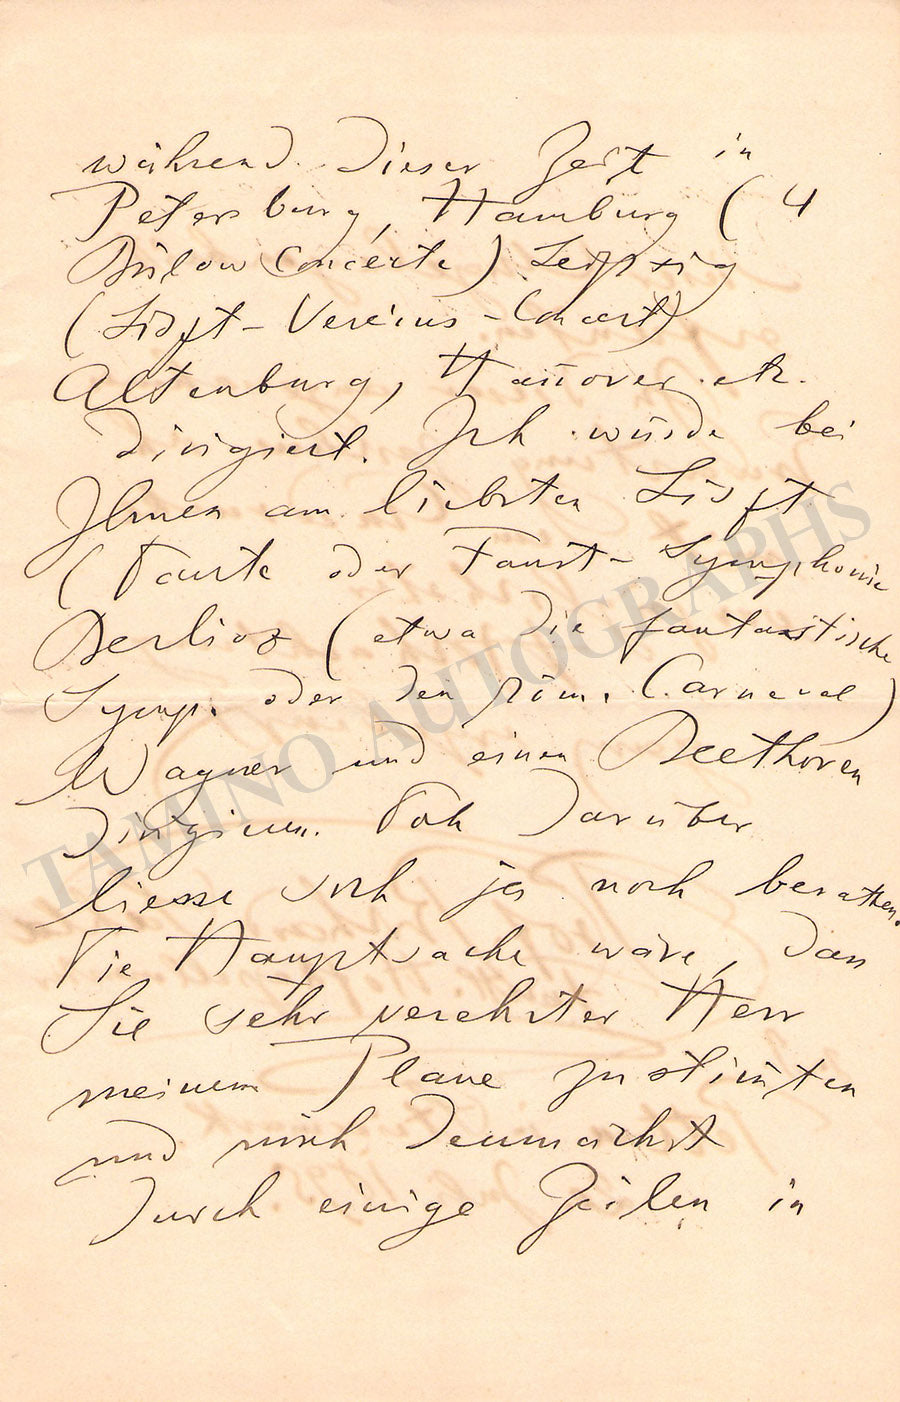 während dieser Zeit in
Petersburg, Hamburg (4
Bülow Concerte) Leipzig
(Liszt-Vereins-Concert)
Altenburg, Hannover etc.
dirigiert. Ich würde bei
Ihnen am liebsten Liszt
(Dante oder Faust-Symphonie
Berlioz (etwa die fantastische
Symp. oder den röm. Carneval)
Wagner und einen Beethoven
dirigieren. Doch darüber
liesse sich ja noch berathen.
Die Hauptsache wäre, dass
Sie sehr verehrter Herr
meinem Plane zustimten
und mich demnächst
durch einige Zeilen in
TAMINO AUTOGRAPHS